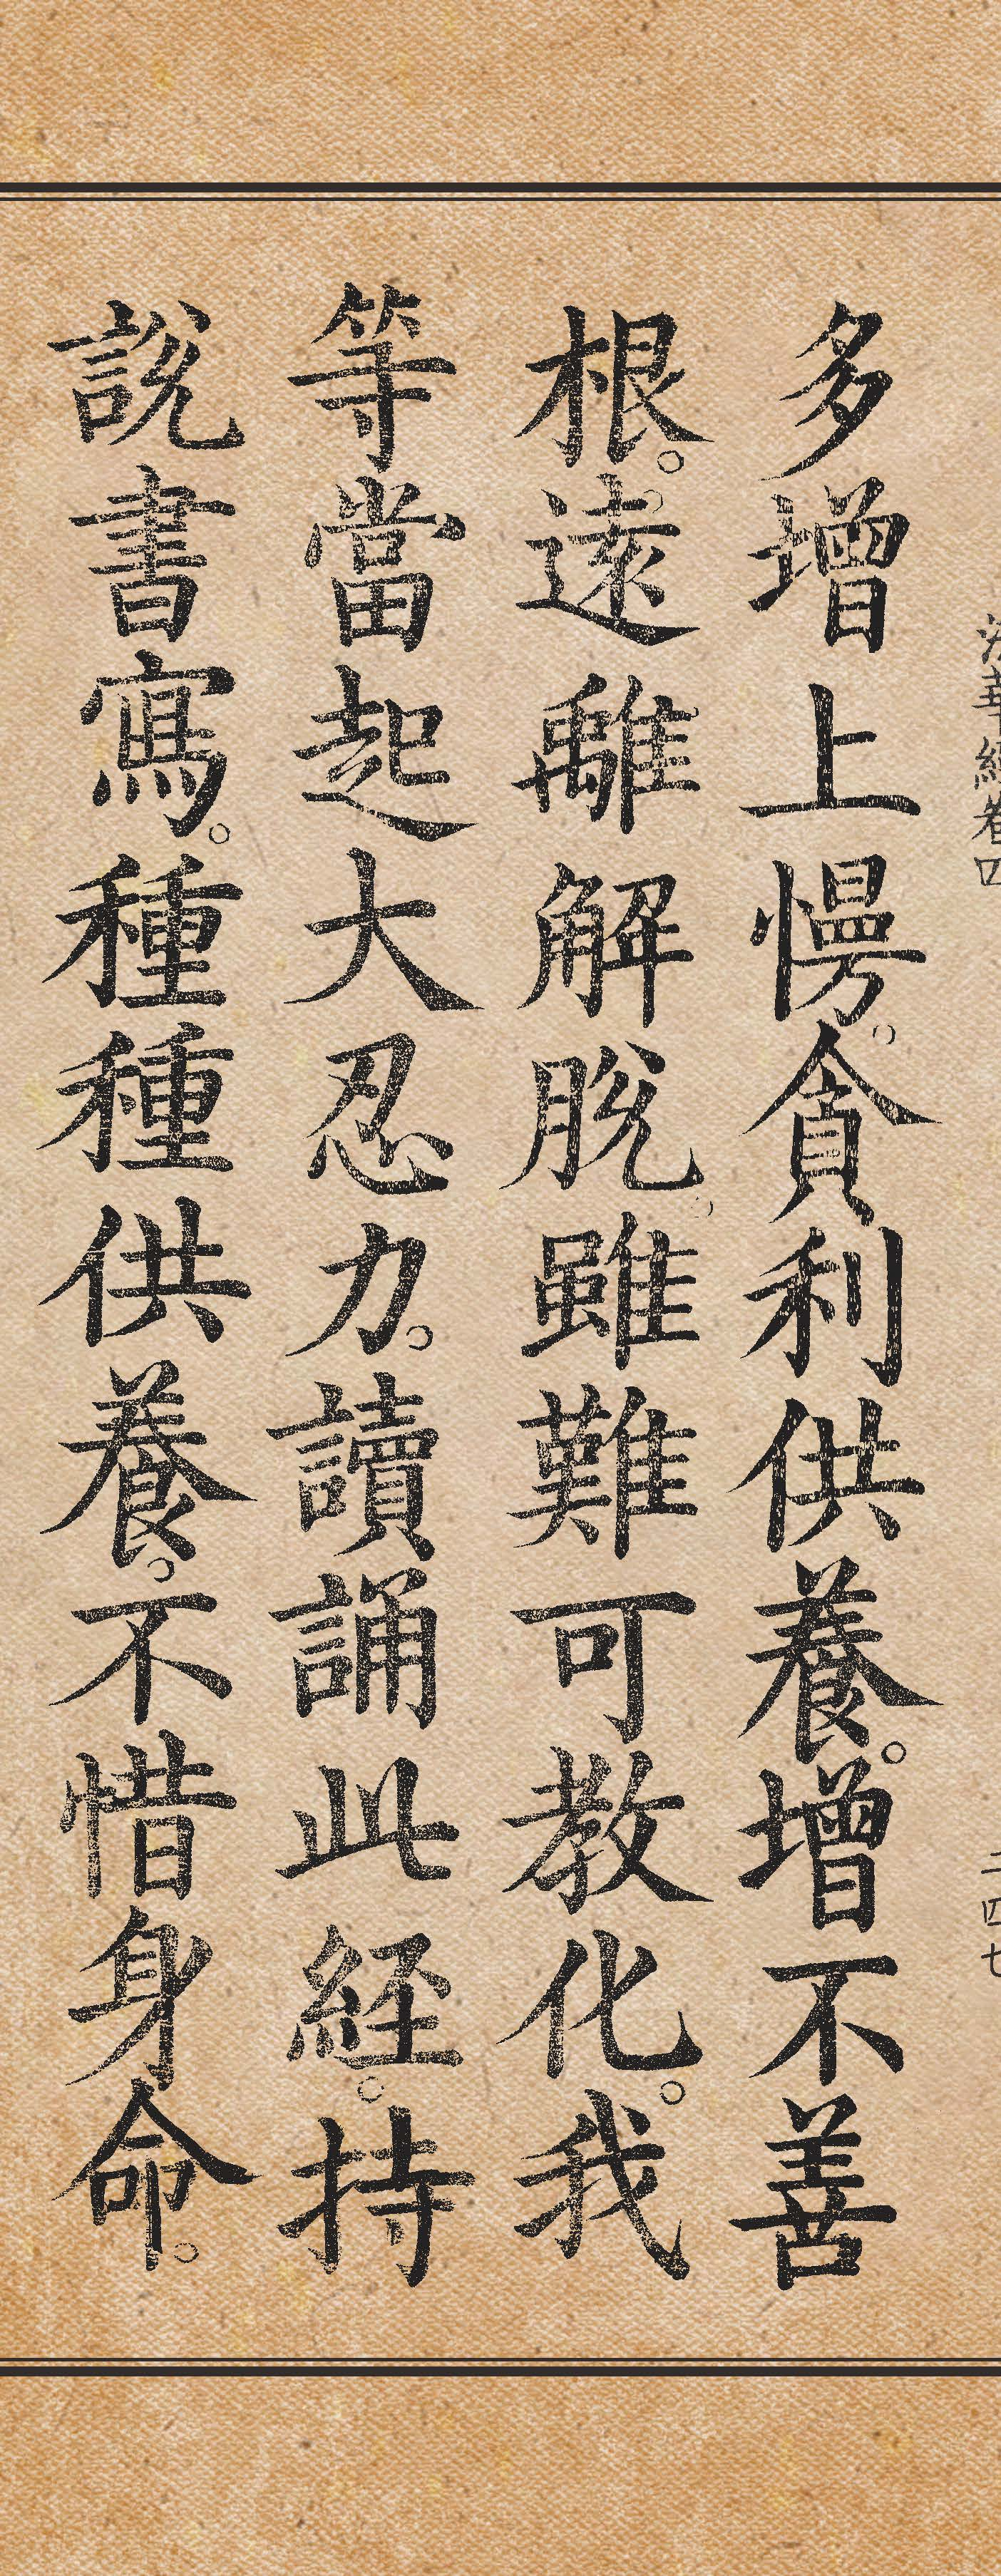 法華經卷四
二四七
多增上慢。貪利供養。增不善
根。遠離解脫。雖難可教化。我
等當起大忍力。讀誦此經。持
說書寫。種種供養。不惜身命。